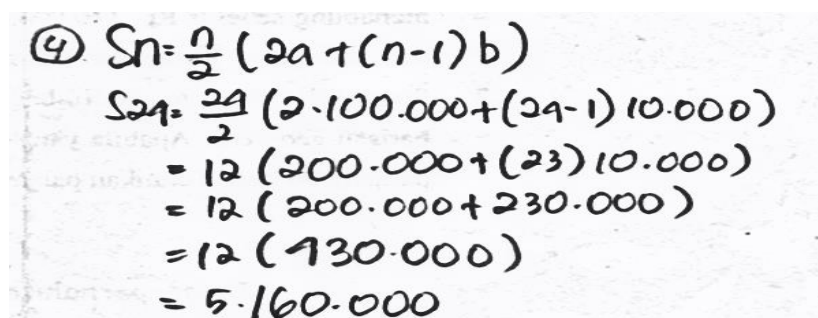 ④ Sn = n/2 (2a + (n-1) b)
S24 = 24/2 (2.100.000 + (24-1) 10.000)
= 12 (200.000 + (23) 10.000)
= 12 (200.000 + 230.000)
= 12 (430.000)
= 5.160.000